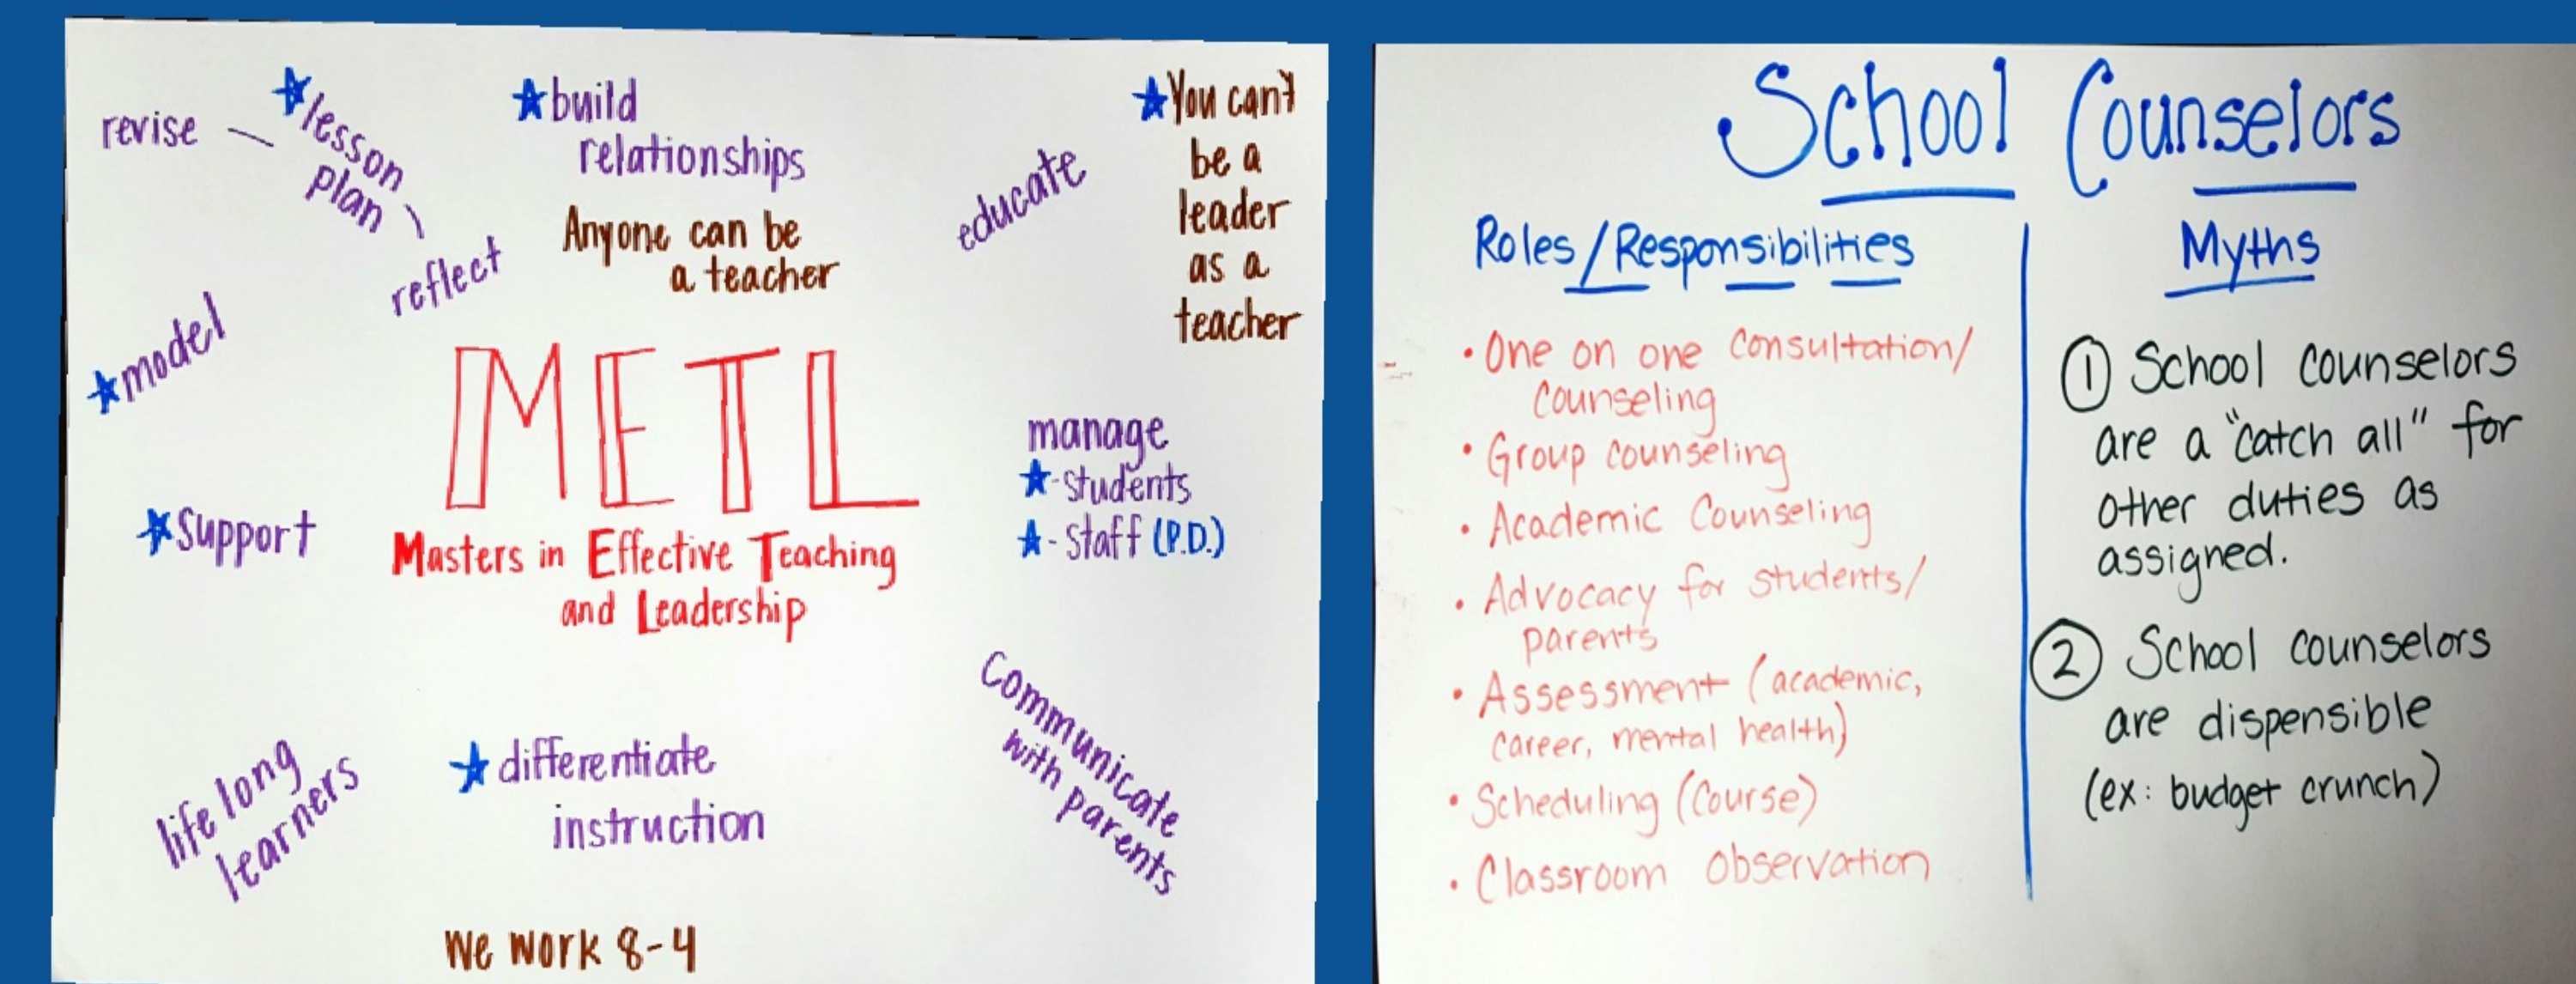 revise
lesson
plan
reflect
build
relationships
Anyone can be
a teacher
educate
You can't
be a
leader
as a
teacher
model
METL
Masters in Effective Teaching
and Leadership
manage
- students
- Staff (P.D.)
Support
life long
learners
differentiate
instruction
Communicate
with parents
We work 8-4
School Counselors
Roles/Responsibilities
• One on one Consultation/
Counseling
• Group counseling
• Academic Counseling
• Advocacy for students/
parents
• Assessment (academic,
career, mental health)
• Scheduling (Course)
• Classroom Observation
Myths
① School counselors
are a "catch all" for
other duties as
assigned.
② School counselors
are dispensible
(ex: budget crunch)